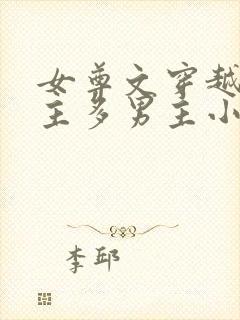 女尊文穿越
主多男主小
李邱